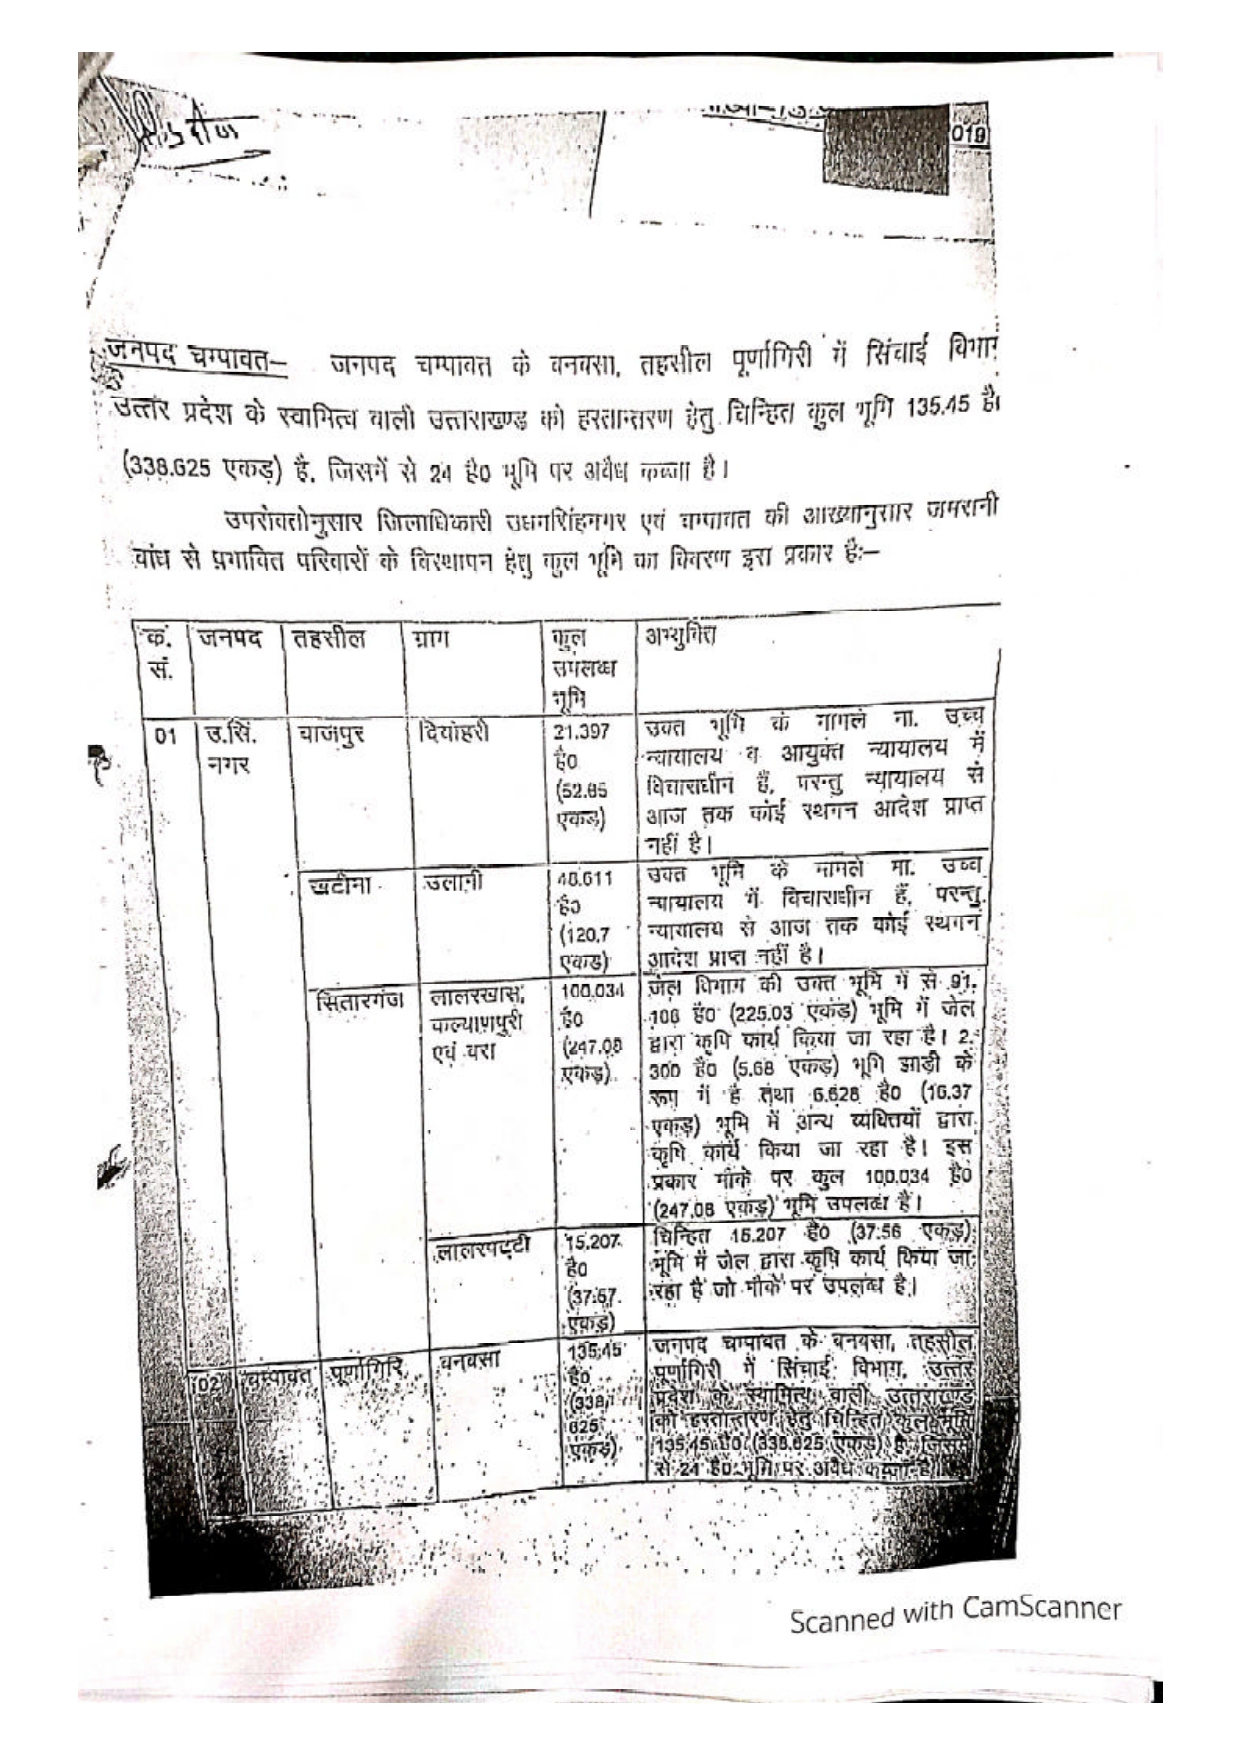 019
जनपद चम्पावत– जनपद चम्पावत के बनबसा, तहसील पूर्णागिरी में सिंचाई विभाग
उत्तर प्रदेश के स्वामित्व वाली उत्तराखण्ड को हस्तान्तरण हेतु चिन्हित कुल भूमि 135.45 है०
(338.625 एकड़) है, जिसमें से 24 है० भूमि पर अवैध कब्जा है।
उपरोक्तोनुसार जिलाधिकारी उधमसिंहनगर एवं चम्पावत की आख्यानुसार जमरानी
बांध से प्रभावित परिवारों के विस्थापन हेतु कुल भूमि का विवरण इस प्रकार है:–
क. सं. जनपद तहसील ग्राम कुल उपलब्ध भूमि अभ्युक्ति
01 उ.सिं. नगर बाजपुर 21.397 है० (52.85 एकड़) उक्त भूमि के मामले मा. उच्च
न्यायालय व आयुक्त न्यायालय में
विचाराधीन हैं, परन्तु न्यायालय से
आज तक कोई स्थगन आदेश प्राप्त
नहीं है।
खटीमा उलानी 48.611 है० (120.7 एकड़) उक्त भूमि के मामले मा. उच्च
न्यायालय में विचाराधीन हैं, परन्तु
न्यायालय से आज तक कोई स्थगन
आदेश प्राप्त नहीं है।
सितारगंज लालरखास, कल्याणपुरी एवं 100.034 है० (247.08 एकड़) जेल विभाग की उक्त भूमि में से 91.
106 है० (225.03 एकड़) भूमि में जेल
द्वारा कृषि कार्य किया जा रहा है। 2.
300 है० (5.68 एकड़) भूमि झाड़ी के
रूप में है तथा 6.628 है० (16.37
एकड़) भूमि में अन्य व्यक्तियों द्वारा
कृषि कार्य किया जा रहा है। इस
प्रकार मौके पर कुल 100.034 है०
(247.08 एकड़) भूमि उपलब्ध है।
लालरपट्टी 15.207 है० (37.57 एकड़) चिन्हित 15.207 है० (37.56 एकड़)
भूमि में जेल द्वारा कृषि कार्य किया जा
रहा है जो मौके पर उपलब्ध है।
02 चम्पावत पूर्णागिरि बनबसा 135.45 है० (338.625 एकड़) जनपद चम्पावत के बनबसा, तहसील
पूर्णागिरी में सिंचाई विभाग, उत्तर
प्रदेश के स्वामित्व वाली उत्तराखण्ड
को हस्तान्तरण हेतु चिन्हित कुल भूमि
135.45 है० (338.625 एकड़) है, जिसमें
से 24 है० भूमि पर अवैध कब्जा है।
Scanned with CamScanner